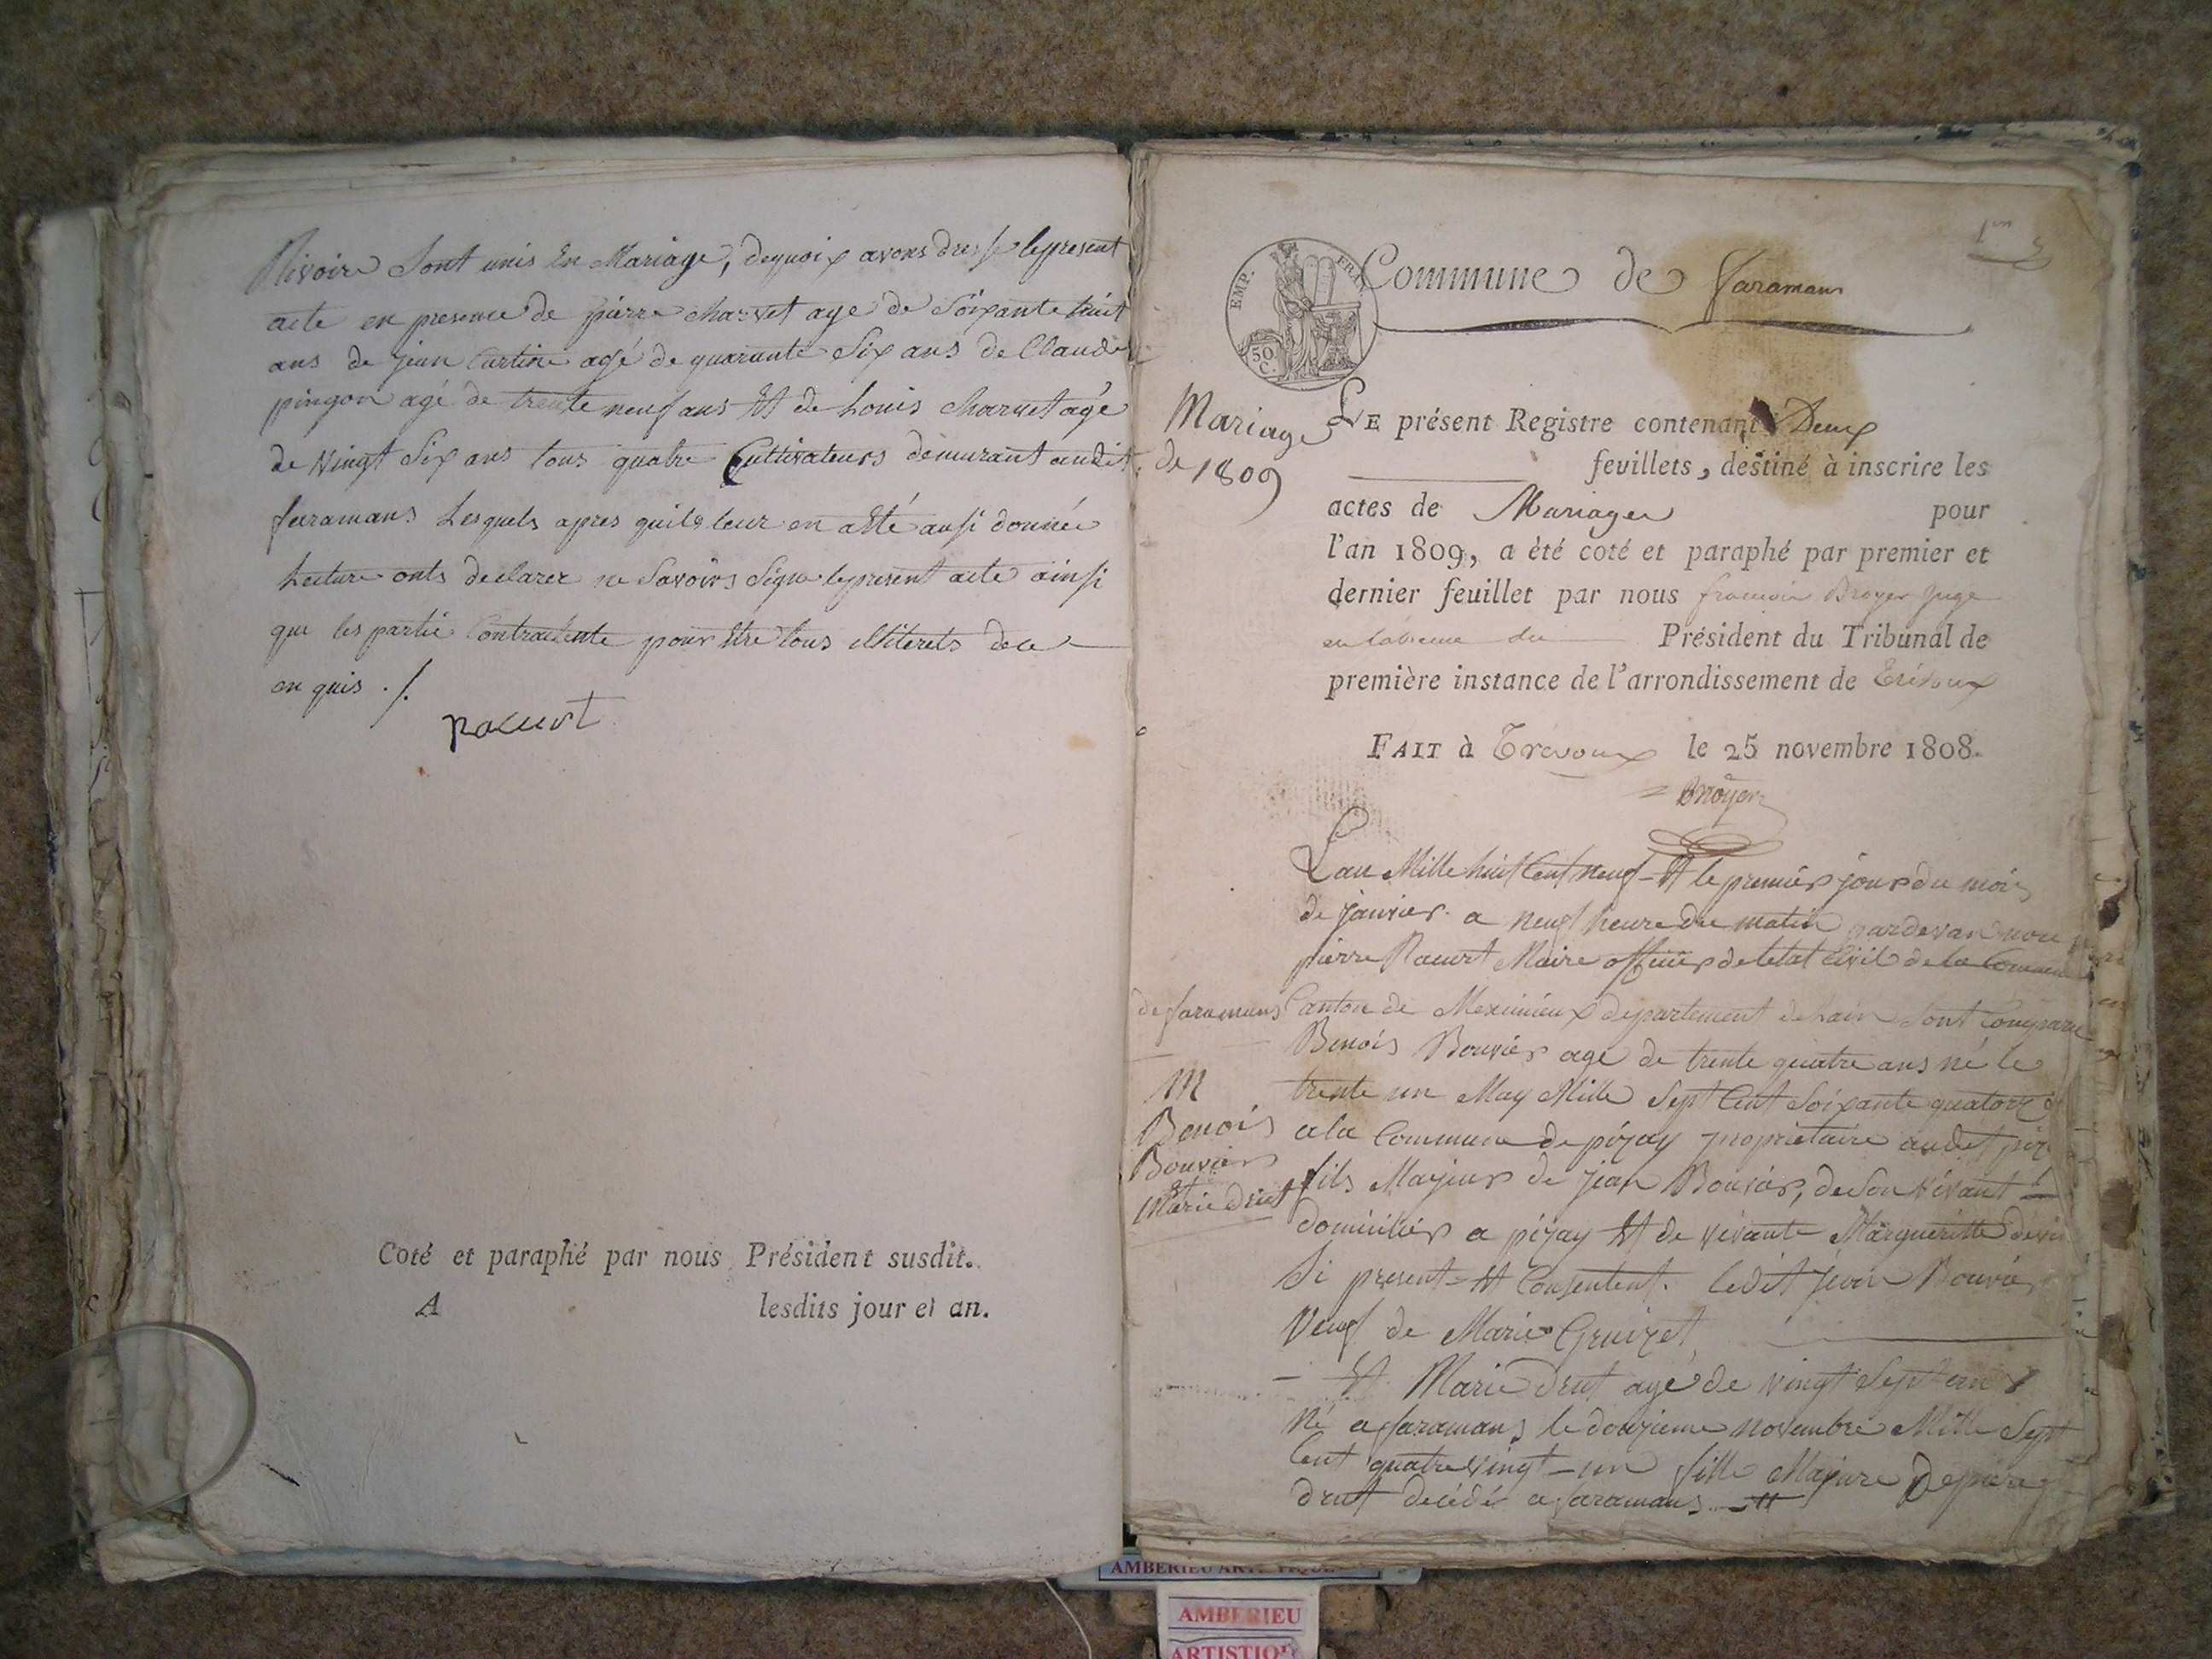 Rivoire Sont unis En Mariage, dequoix avons dresse lepresent
acte en presence de pierre charvet age de Soixante huit
ans de jean Cartine agé de quarante Six ans de Claude
pingon agé de trente neuf ans Et de Louis charvet agé
de Vingt Six ans tous quatre Cultivateurs demeurant audit
faramans Lesquels apres quils leur en a Eté ausi donnée
Lecture onts declarer ne Savoirs Signe lepresent acte ainsi
que les partie Contractente pour Etre tous illiterets de ce
en quis ./.
Racurt
Coté et paraphé par nous Président susdit.
A lesdits jour et an.
1er
EMP. FRA.
50 C.
Commune de faramans
Mariage
de 1809
LE présent Registre contenant Deux
feuillets, destiné à inscrire les
actes de Mariages pour
l'an 1809, a été coté et paraphé par premier et
dernier feuillet par nous francois Broyer juge
en labsence du Président du Tribunal de
première instance de l'arrondissement de Trévoux
FAIT à Trevoux le 25 novembre 1808.
Broyer
Lan Mille huit Cent neuf Et le premier jour du mois
de janvier a neuf heure du matin pardevan nou
pierre Racurt Maire officier de letat Civil de la Commune
de faramans Canton de Meximieux departement de Lain Sont Comparu
Benois Bouvier age de trente quatre ans né le
trente un May Mille Sept Cent Soixante quatorze
a la Commune de pizay proprietaire audet piz
fils Majeur de Jean Bouvier, de Son Vivant
domicilier a pizay Et de vivante Margueritte
Si present Et Consentent. Ledit Bouvier
Veuf de Marie Gruizet
M
Benois
Bouvier
Et
Marie drut
Et Marie drut agé de vingt Sept ans
Né a faramans le douzieme novembre Mille Sept
Cent quatre vingt un fille Majure De piere
drut decédé a faramans Et
AMBERIEU ARTISTIQUE
AMBERIEU
ARTISTIQUE